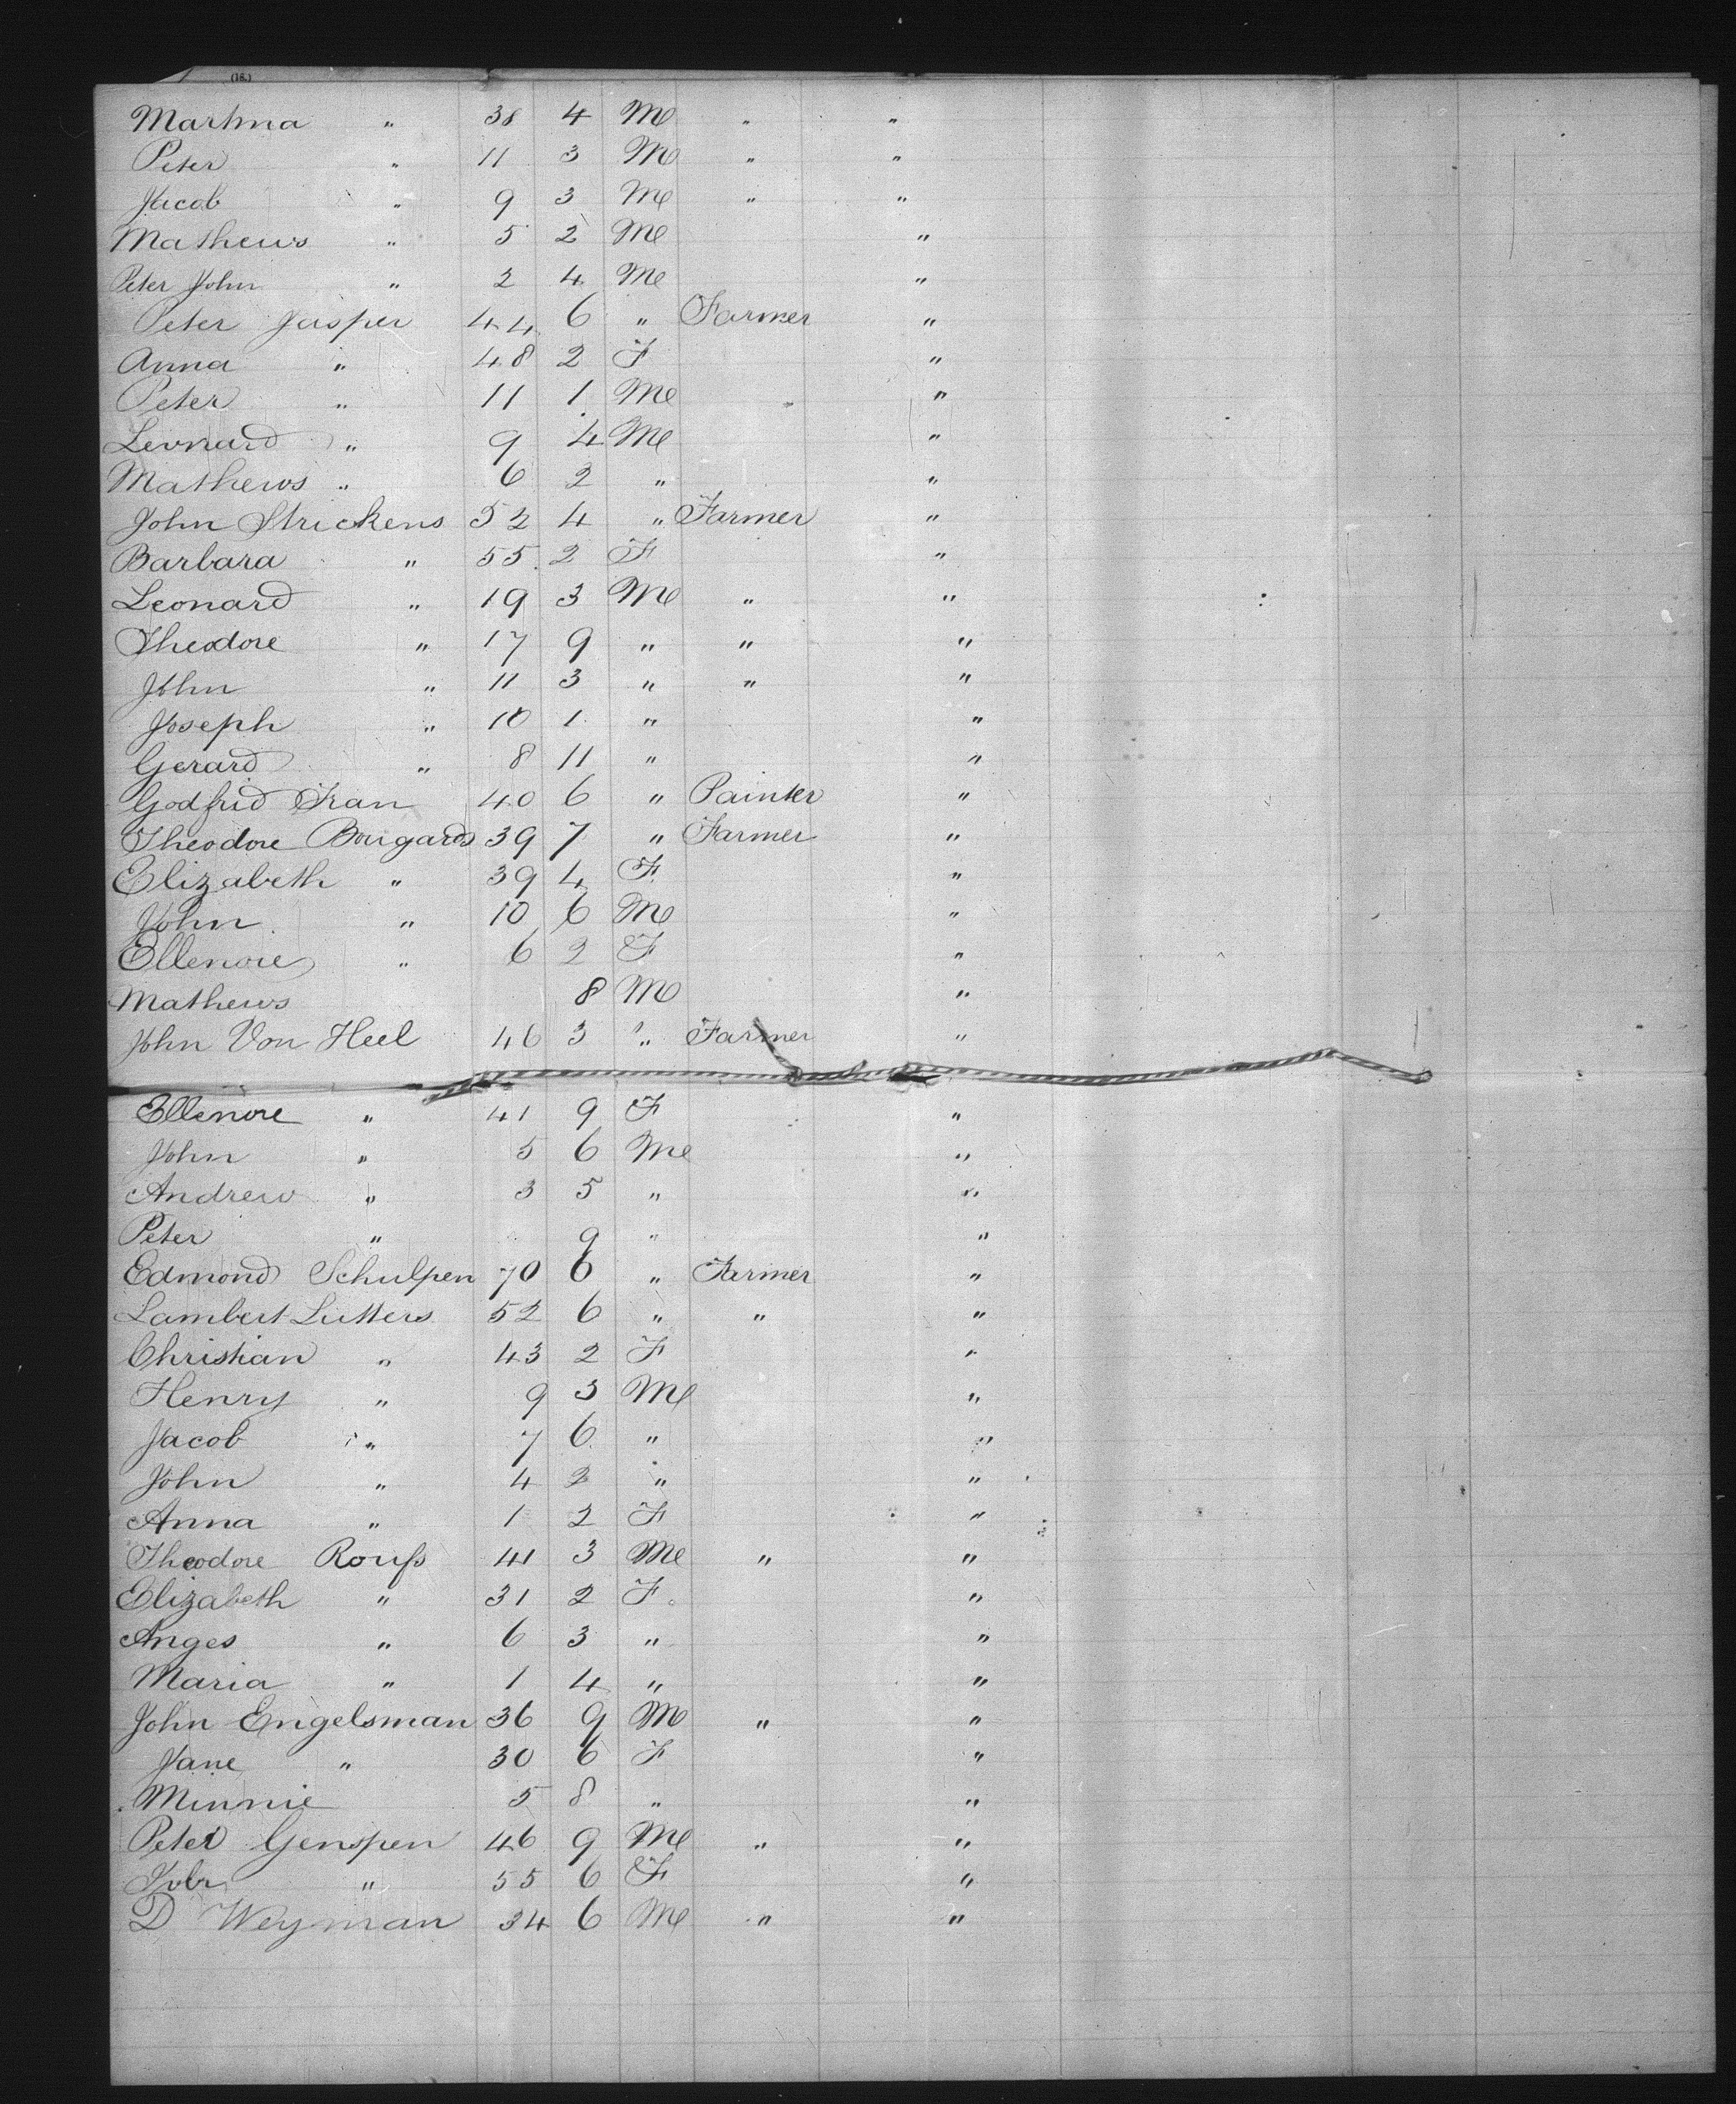 (18.)
Martina " 38 4 M " "
Peter " 11 3 M " "
Jacob " 9 3 M " "
Mathews " 5 2 M "
Peter John " 2 4 M "
Peter Jasper 44 6 " Farmer "
Anna " 48 2 F "
Peter " 11 1 M "
Leonard " 9 4 M "
Mathews " 6 2 " "
John Strickens 52 4 " Farmer "
Barbara " 55 2 F "
Leonard " 19 3 M " "
Theodore " 17 9 " " "
John " 11 3 " " "
Joseph " 10 1 " "
Gerard " 8 11 " "
Godfrid 40 6 " Painter "
Theodore Bougards 39 7 " Farmer "
Elizabeth " 39 4 F "
John " 10 6 M "
Ellenore " 6 2 F "
Mathews 8 M "
John Von Heel 46 3 " Farmer "
Ellenore " 41 9 F "
John " 5 6 M "
Andrew " 3 5 " "
Peter " 9 " "
Edmond Schulpen 70 6 " Farmer "
Lambert Lutters 52 6 " " "
Christian " 43 2 F "
Henry " 9 3 M "
Jacob " 7 6 " "
John " 4 2 " "
Anna " 1 2 F "
Theodore Roufs 41 3 M " "
Elizabeth " 31 2 F "
Anges " 6 3 " "
Maria " 1 4 " "
John Engelsman 36 9 M " "
Jane " 30 6 F "
Minnie 5 8 " "
Peter Genspen 46 9 M " "
" 55 6 F "
D Weyman 34 6 M " "